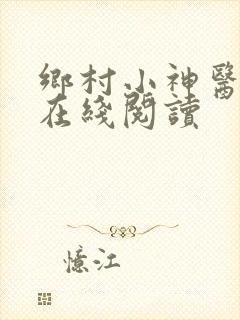 鄉村小神醫
在綫閱讀
憶江